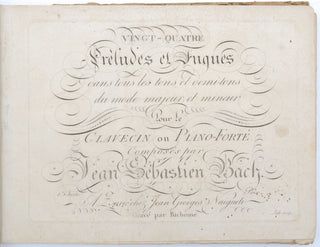 VINGT-QUATRE
Préludes et Fugues
dans tous les tons et demi-tons
du mode majeur et mineur
Pour le
CLAVECIN ou PIANO-FORTE
Composés par
Jean Sébastien Bach.
A Zuric chez Jean Georges Naigueli
Gravé par Richomme